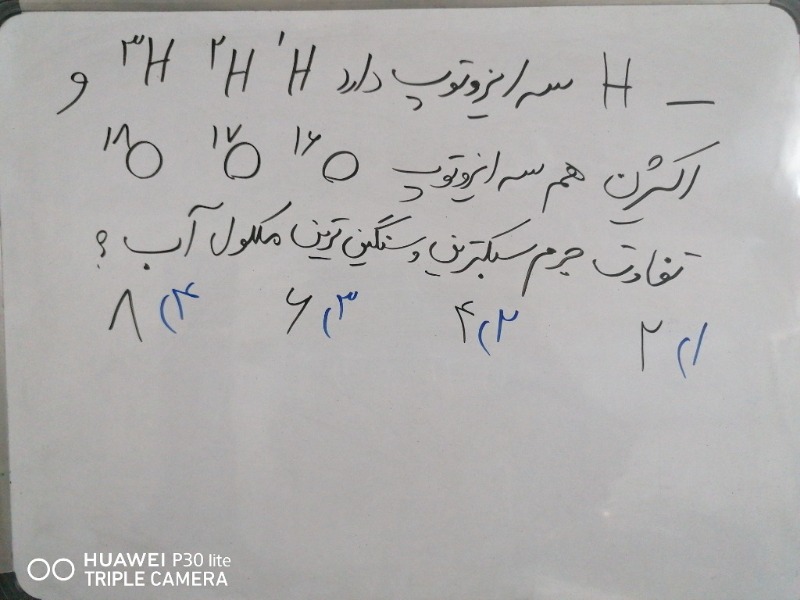 _ H سه ایزوتوپ دارد ¹H ²H ³H و
اکسیژن هم سه ایزوتوپ ¹⁶O ¹⁷O ¹⁸O
تفاوت جرم سبکترین و سنگین ترین مولکول آب ؟
۱) ۲ ۲) ۴ ۳) ۶ ۴) ۸
HUAWEI P30 lite
TRIPLE CAMERA